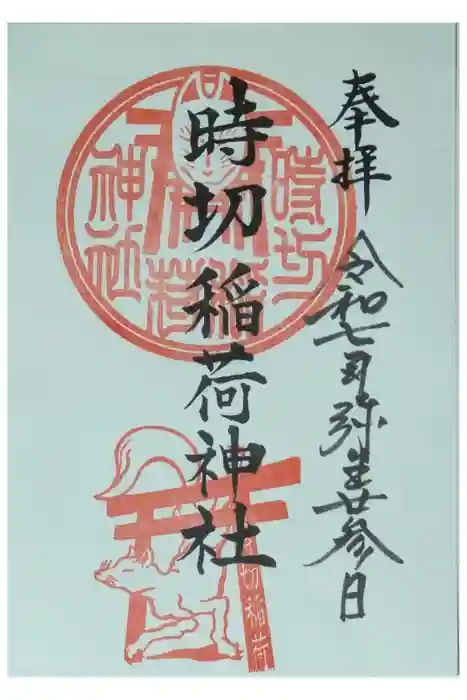 奉拝
令和七年弥生廿参日
時切稲荷神社
時切
稲荷
神社
時切稲荷